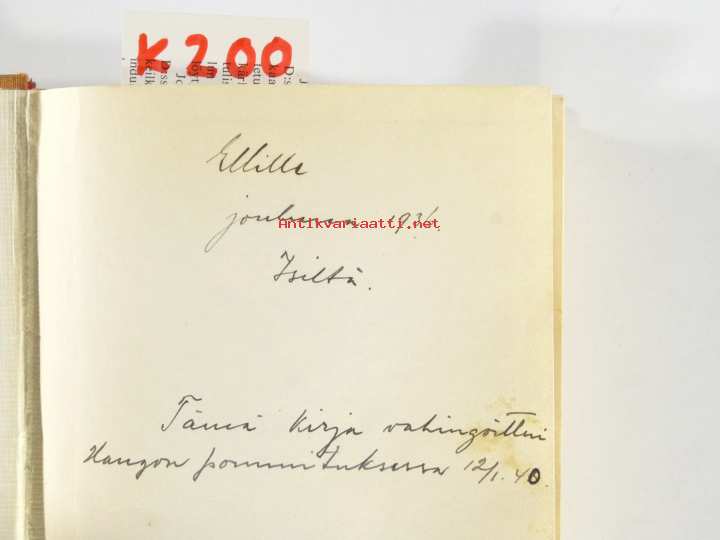 K 200
Ellille
jouluna 1931.
Antikvariaatti.net
Isiltä.
Tämä kirja vahingoittui
Hangon pommituksessa 12/1.40.